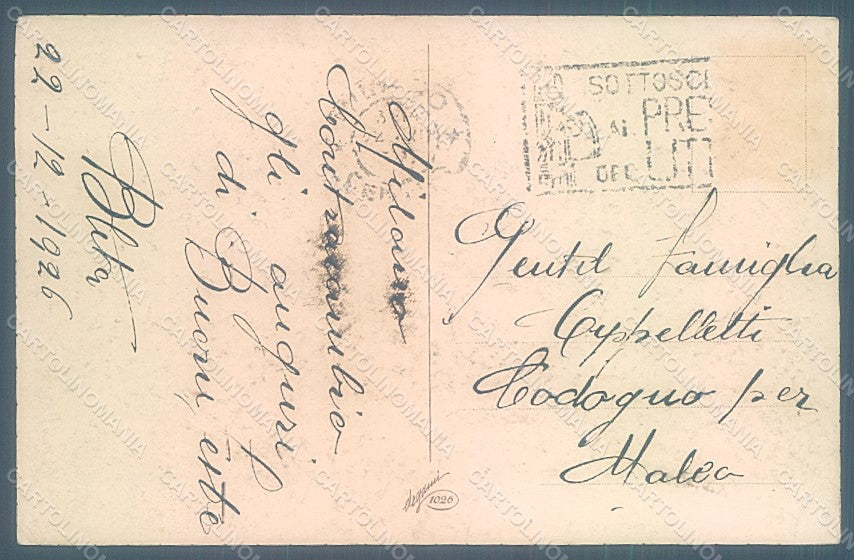 Milano
Contracambio
gli auguri
di Buone feste
22-12-1926
SOTTOSCI
AL PRE
LIT
Gentil Famiglia
Cappelletti
Codogno per
Maleo
degami
1026
CARTOLINOMANIA